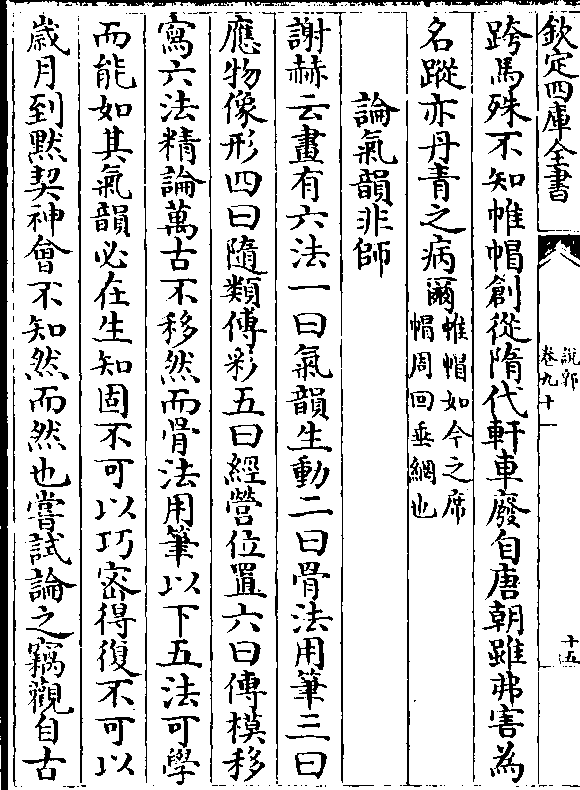 欽定四庫全書
說郛
卷九十一
十五
跨馬殊不知帷帽創從隋代軒車廢自唐朝雖弗害為
名蹤亦丹青之病爾帷帽如今之席
帽周回垂網也
論氣韻非師
謝赫云畫有六法一曰氣韻生動二曰骨法用筆三曰
應物像形四曰隨類傅彩五曰經營位置六曰傳模移
寫六法精論萬古不移然而骨法用筆以下五法可學
而能如其氣韻必在生知固不可以巧密得復不可以
歲月到黙契神會不知然而然也嘗試論之竊觀自古